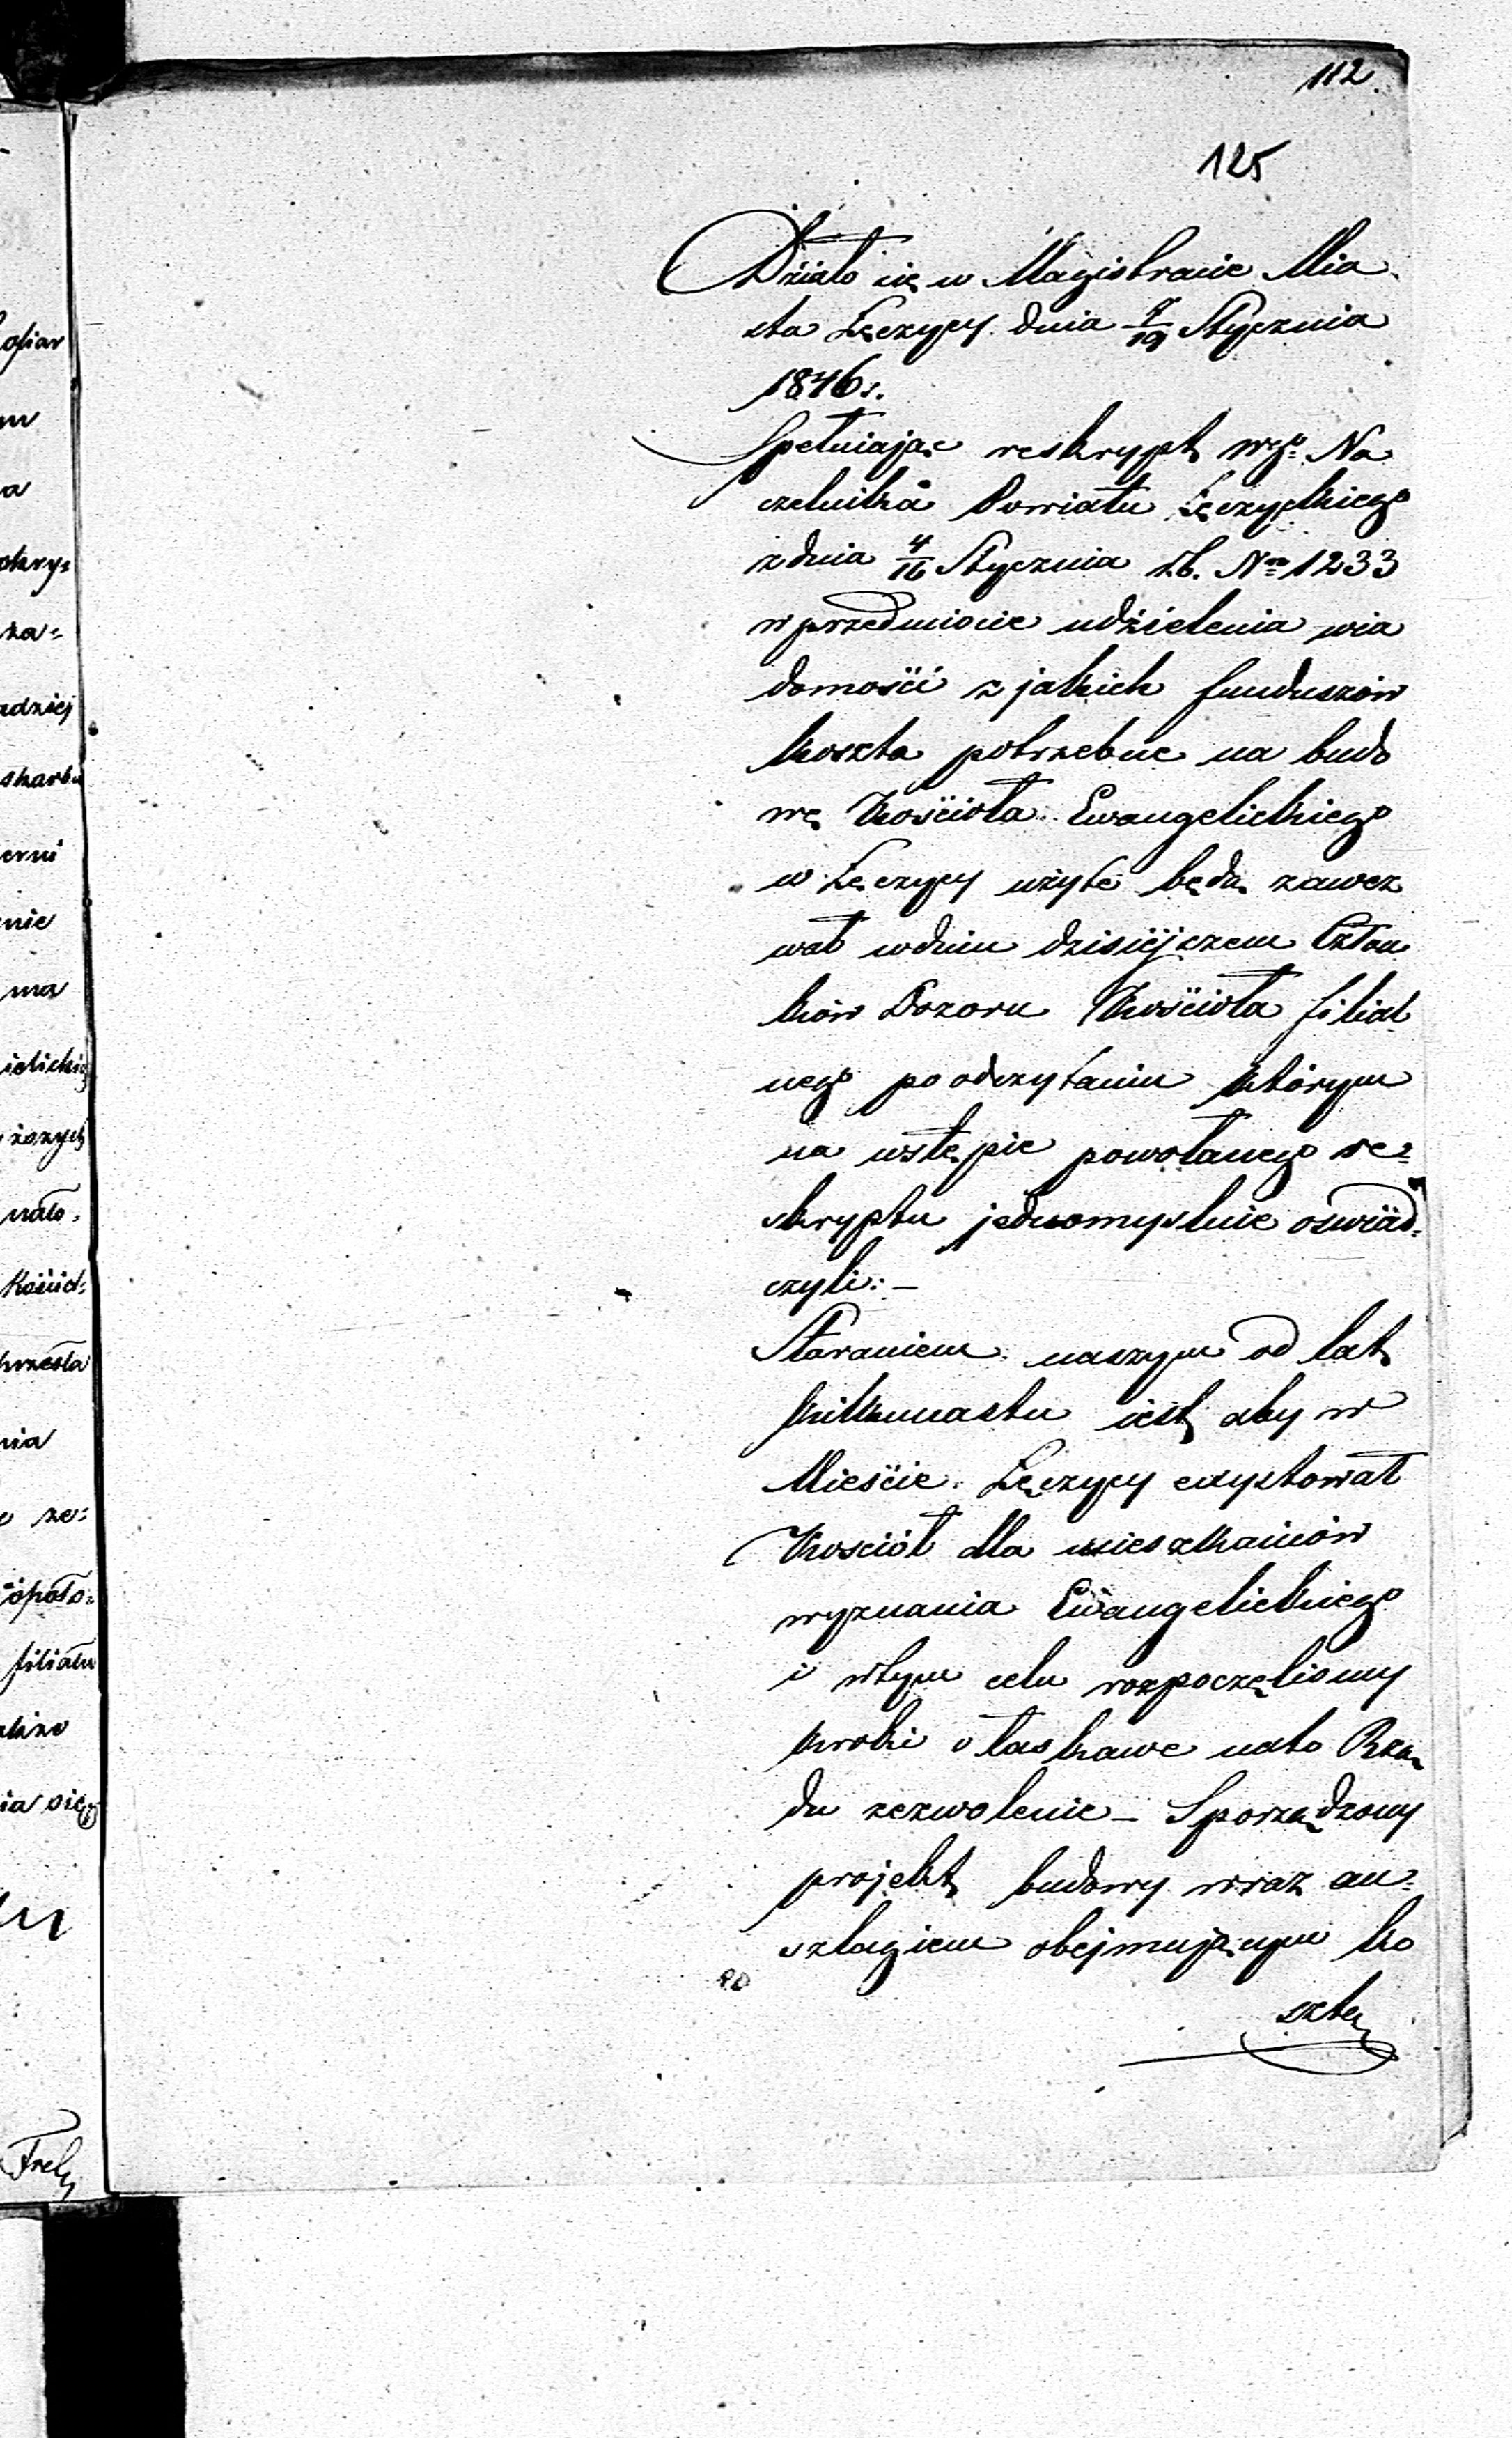 112.
125
Działo się w Magistracie Mia
sta Łęczycy dnia 7/19 Stycznia
1846 r.
Spełniając reskrypt Wgo Na
czelnika Powiatu Łęczyckiego
z dnia 4/16 Stycznia r.b. Nro 1233
w przedmiocie udzielenia wia
domości z jakich funduszów
koszta potrzebne na budo
wę Kościoła Ewangelickiego
w Łęczycy użyte będą zawez
wał wdniu dzisiejszem Człon
ków Dozoru Kościoła filial
nego po odczytaniu którym
na wstępie powołanego re=
skryptu jednomyslnie oswiad=
czyli: –
Staraniem naszym od lat
kilkunastu jest aby w
Mieście Łęczycy exystował
Kosciół dla mieszkańców
wyznania Ewangelickiego
i wtym celu rozpoczęliśmy
kroki o łaskawe nato Rzą
du zezwolenie – Sporządzony
projekt budowy wraz an=
szlagiem obejmującym ko
szta
ofiar
m
a
skry=
za=
adziej
skarbu
erni
nie
ma
ielickie
żonych
nało=
Kościel=
krzesła
nia
ze=
opoło=
filialn
akże
ia się